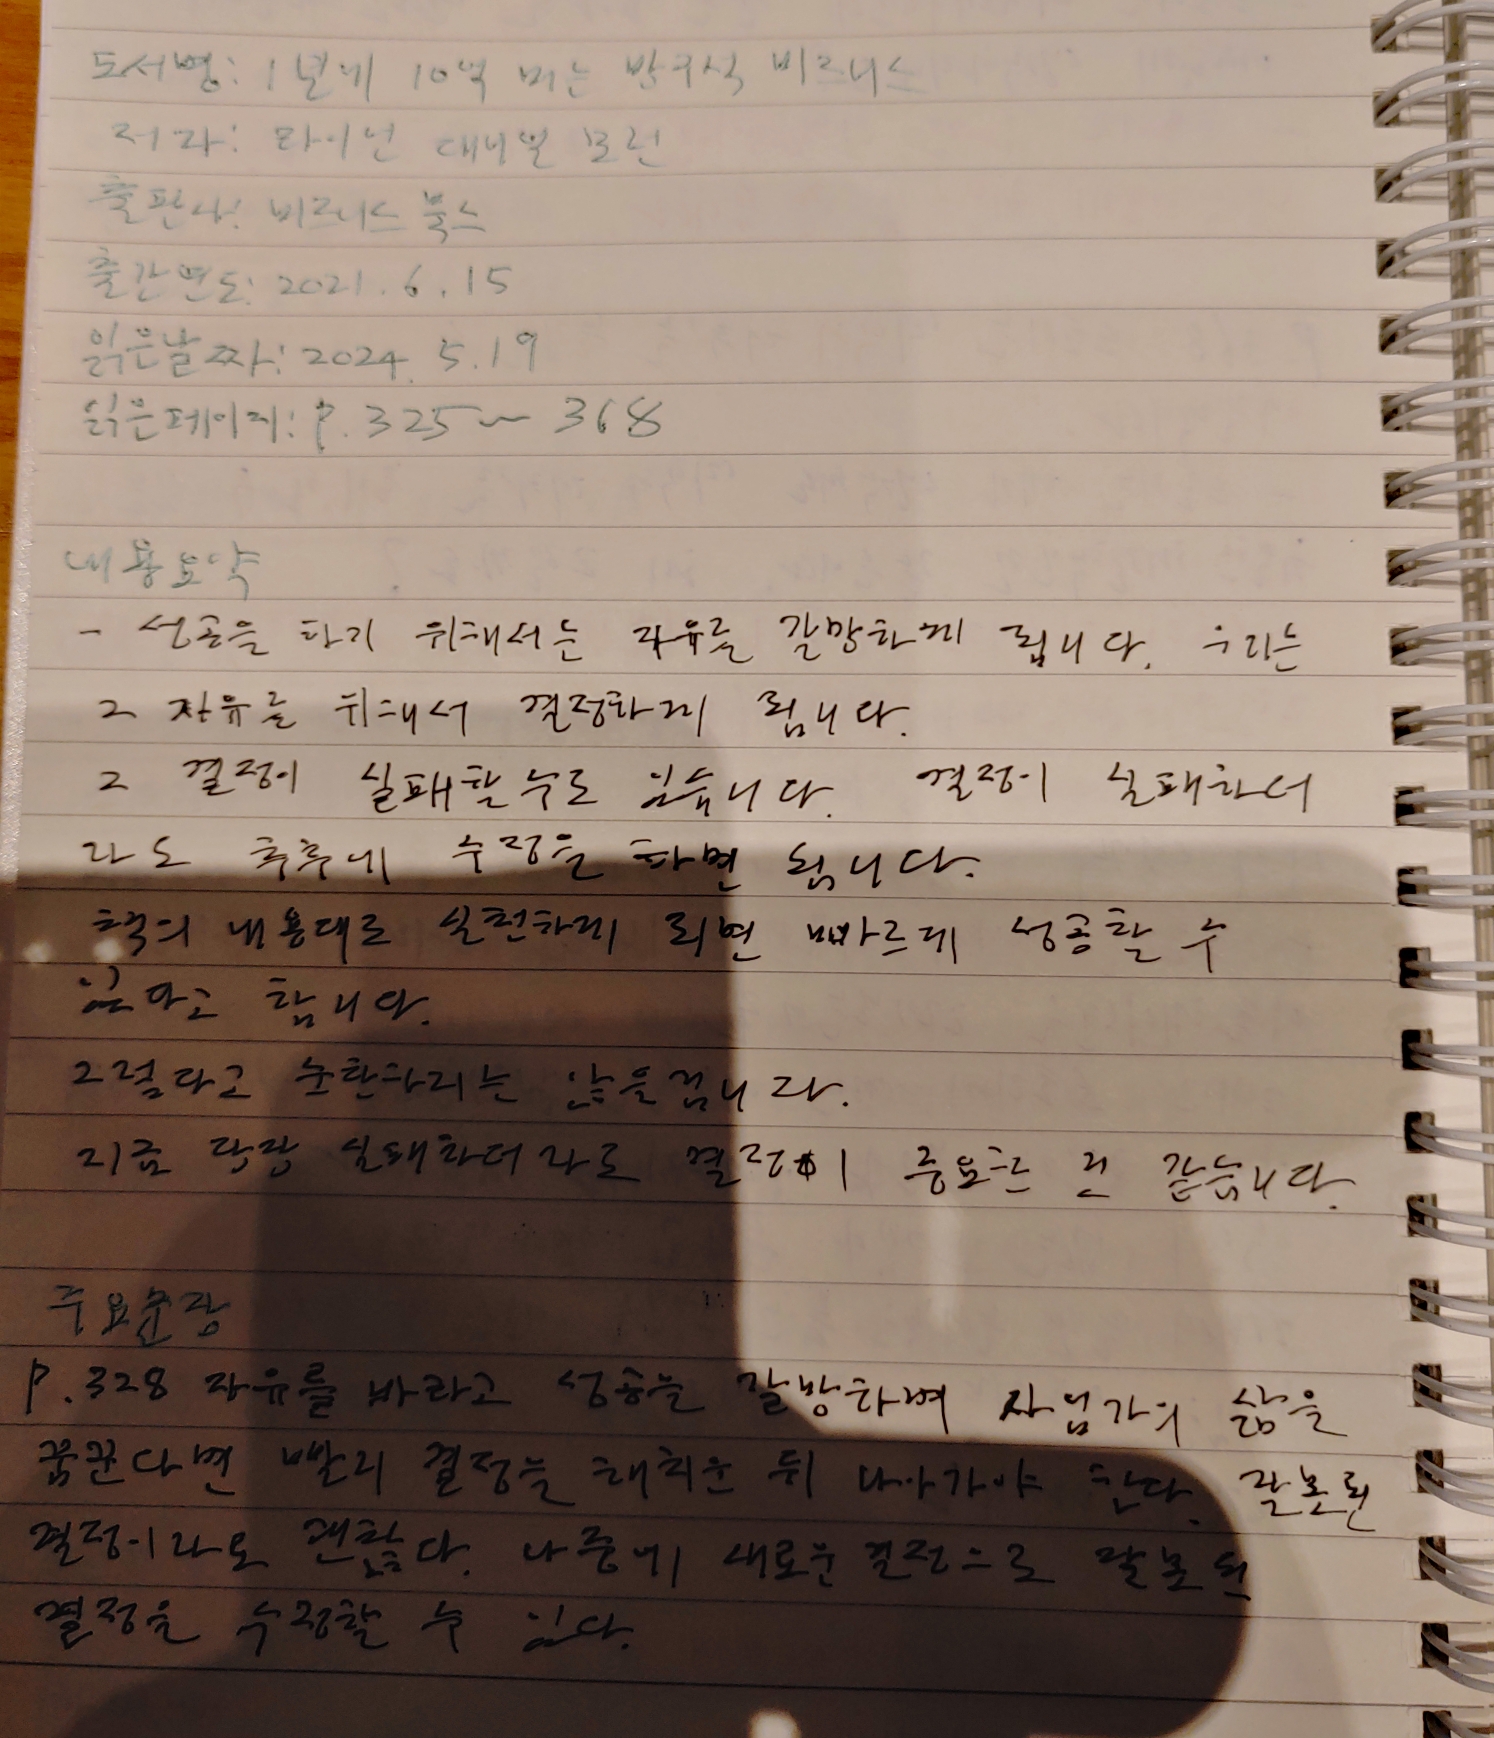 도서명: 1년에 10억 버는 방구석 비즈니스
저자: 라이언 대니얼 모런
출판사: 비즈니스 북스
출간연도: 2021.6.15
읽은날짜: 2024.5.19
읽은페이지: P.325~368
내용요약
- 성공을 하기 위해서는 자유를 갈망하게 됩니다. 우리는
그 자유를 위해서 결정하게 됩니다.
그 결정이 실패할수도 있습니다. 결정이 실패하더
라도 추후에 수정을 하면 됩니다.
책의 내용대로 실천하게 되면 빠르게 성공할 수
있다고 합니다.
그렇다고 순탄하지는 않을겁니다.
지금 당장 실패하더라도 결정이 중요한 건 같습니다.
주요문장
P.328 자유를 바라고 성공을 갈망하며 사업가의 삶을
꿈꾼다면 빨리 결정을 해치운 뒤 나아가야 한다. 잘못된
결정이라도 괜찮다. 나중에 새로운 결정으로 잘못된
결정을 수정할 수 있다.